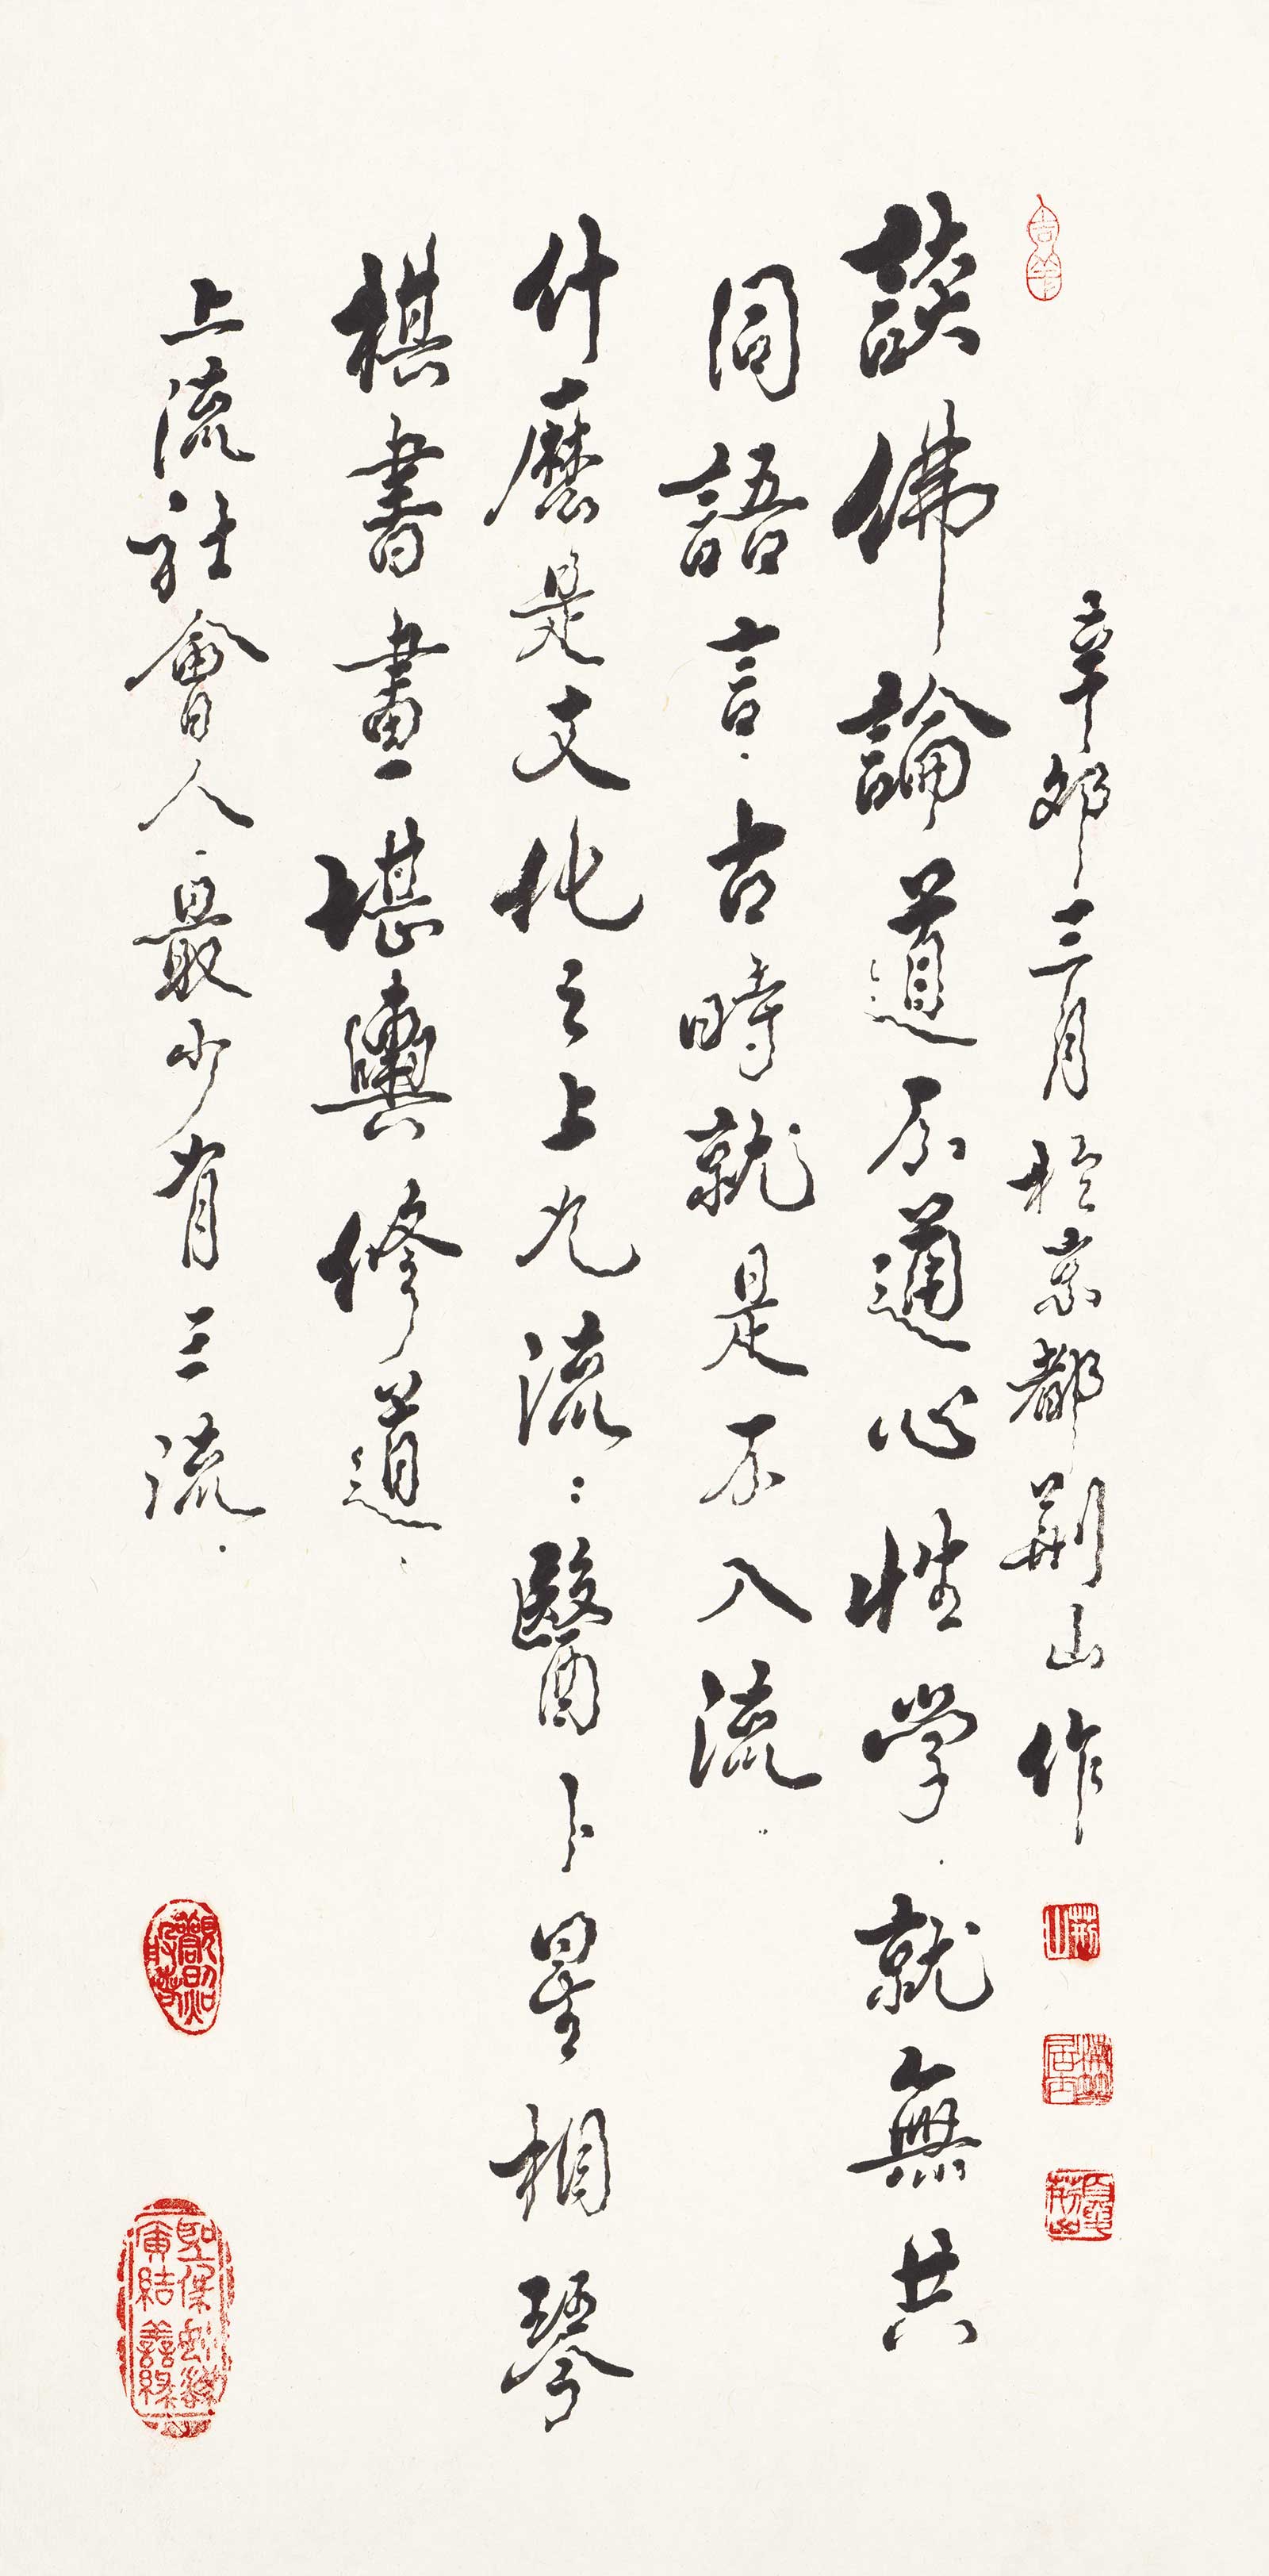 辛卯三月於京都荊山作
荊山
談佛論道不通心性学．就無共
同語言．古時就是不入流．
什麼是文化之上九流：醫卜星相琴
棋書畫堪輿修道．
上流社會人．最少有三流．
觀照般若
廣結善緣